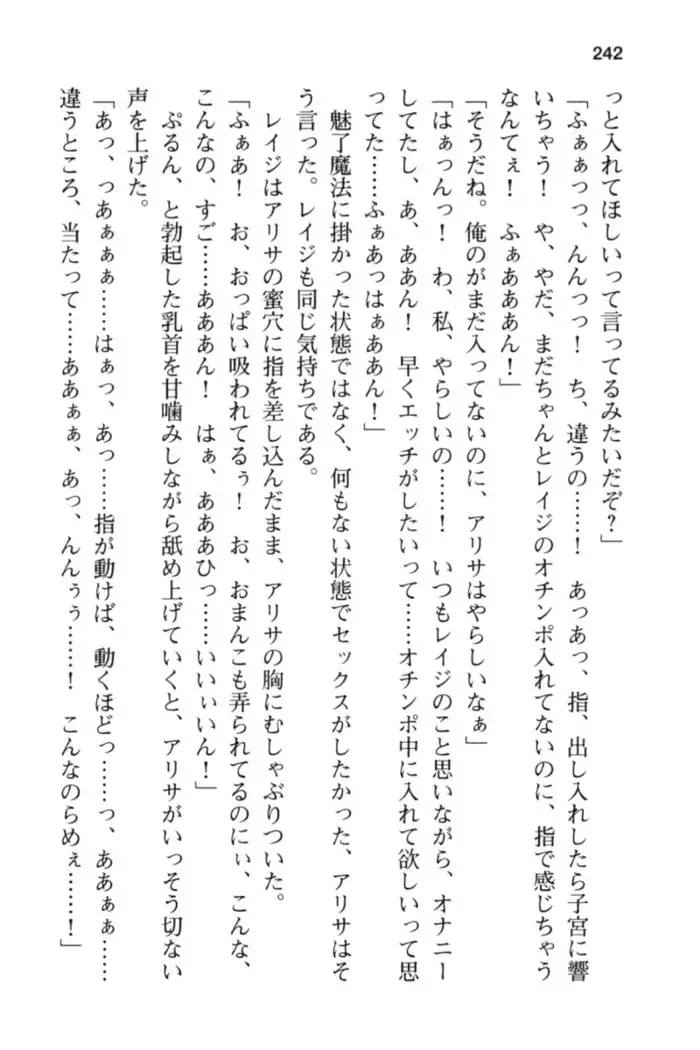 242
っと入れてほしいって言ってるみたいだぞ？」
「ふぁぁっっ、んんっっ！　ち、違うの……！　あっあっ、指、出し入れしたら子宮に響
いちゃう！　や、やだ、まだちゃんとレイジのオチンポ入れてないのに、指で感じちゃう
なんてぇ！　ふぁあああん！」
「そうだね。俺のがまだ入ってないのに、アリサはやらしいなぁ」
「はぁっんっ！　わ、私、やらしいの……！　いつもレイジのこと思いながら、オナニー
してたし、あ、ああん！　早くエッチがしたいって……オチンポ中に入れて欲しいって思
ってた……ふぁあっはぁああん！」
魅了魔法に掛かった状態ではなく、何もない状態でセックスがしたかった、アリサはそ
う言った。レイジも同じ気持ちである。
レイジはアリサの蜜穴に指を差し込んだまま、アリサの胸にむしゃぶりついた。
「ふぁあ！　お、おっぱい吸われてるぅ！　お、おまんこも弄られてるのにぃ、こんな、
こんなの、すご……あああん！　はぁ、あああひっ……いいぃいん！」
ぷるん、と勃起した乳首を甘噛みしながら舐め上げていくと、アリサがいっそう切ない
声を上げた。
「あっ、っあぁぁぁ……はぁっ、あっ……指が動けば、動くほどっ……っ、ああぁぁ……
違うところ、当たって……ああぁぁ、あっ、んんぅぅ……！　こんなのらめぇ……！」